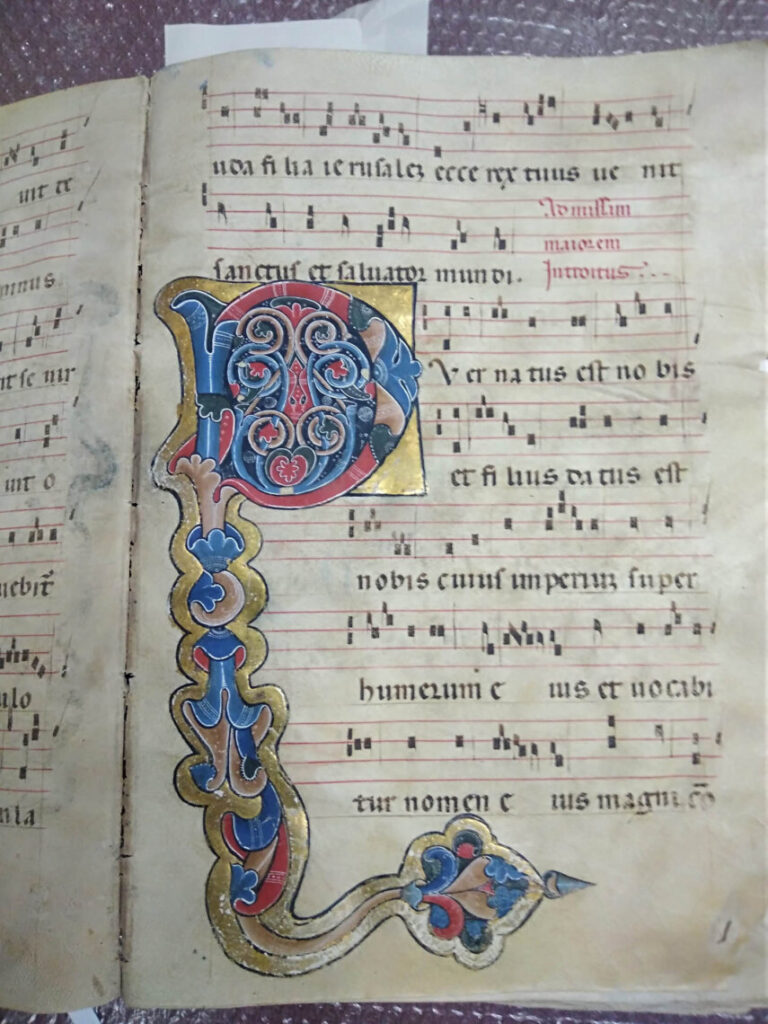 uit te
minus
it se nir
uit o
uebit̄
ulo
nla
uda fi lia ie rusaleʒ ecce rex tuus ue nit
sanctus et saluator mundi.
Ad missam
maiorem
Introitus
P V er na tus est no bis
et fi lius da tus est
nobis cuius imperiuʒ super
humerum e ius et uocabi
tur nomen e ius magni cō
1